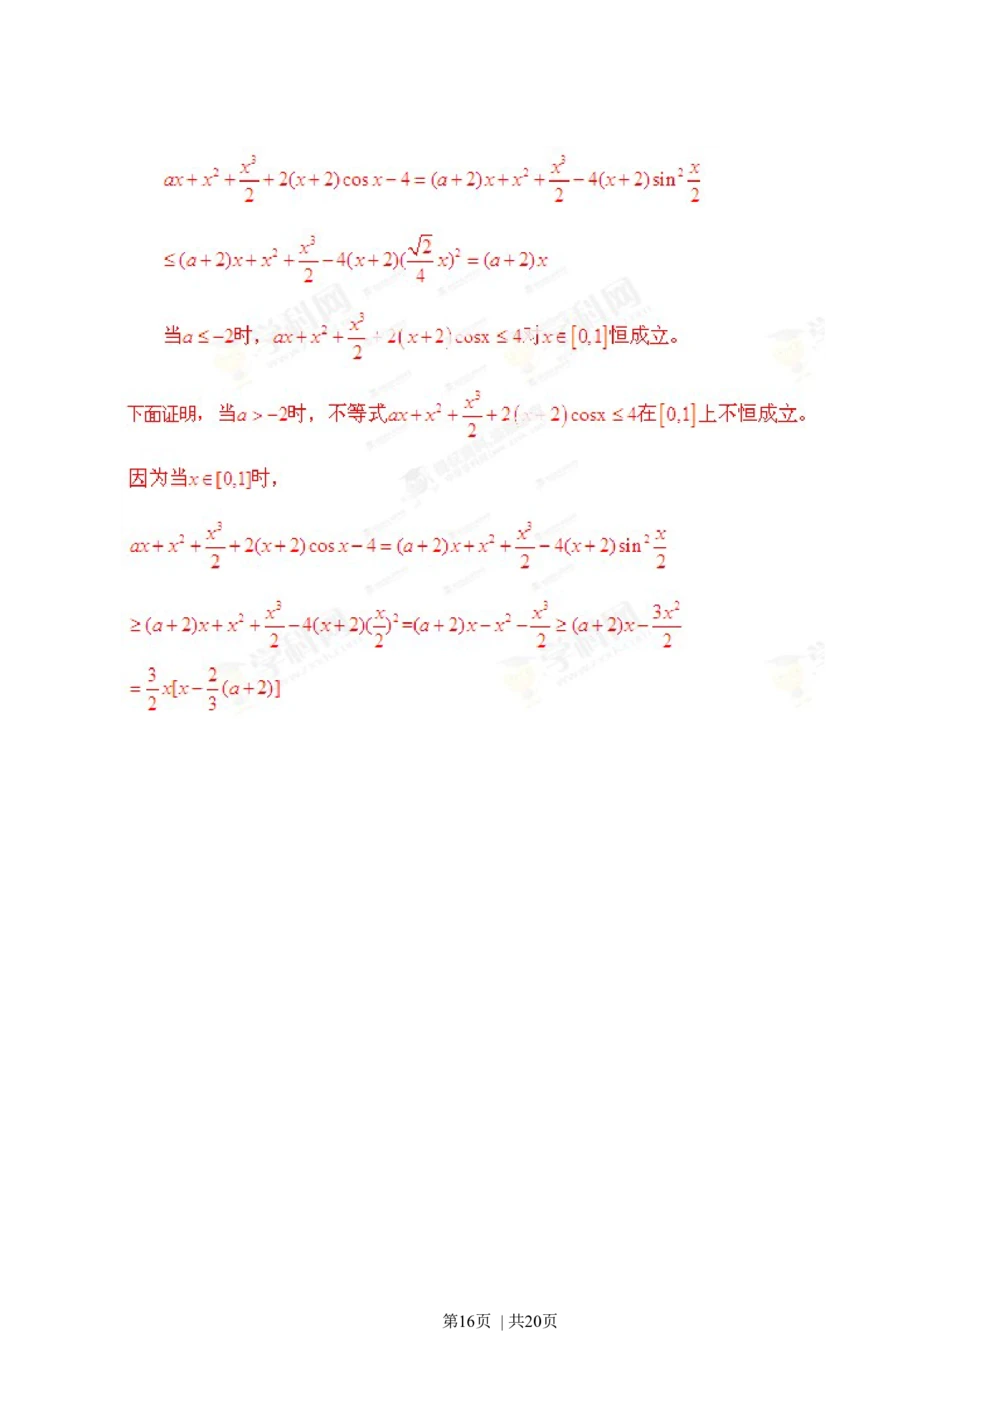 ax+x²+x³/2+2(x+2)cos x−4=(a+2)x+x²+x³/2−4(x+2)sin²x/2
≤(a+2)x+x²+x³/2−4(x+2)(√2/4 x)²=(a+2)x
当a≤−2时，ax+x²+x³/2+2(x+2)cosx≤4对x∈[0,1]恒成立。
下面证明，当a>−2时，不等式ax+x²+x³/2+2(x+2)cosx≤4在[0,1]上不恒成立。
因为当x∈[0,1]时，
ax+x²+x³/2+2(x+2)cos x−4=(a+2)x+x²+x³/2−4(x+2)sin²x/2
≥(a+2)x+x²+x³/2−4(x+2)(x/2)²=(a+2)x−x²−x³/2≥(a+2)x−3x²/2
=3/2x[x−2/3(a+2)]
第16页 | 共20页